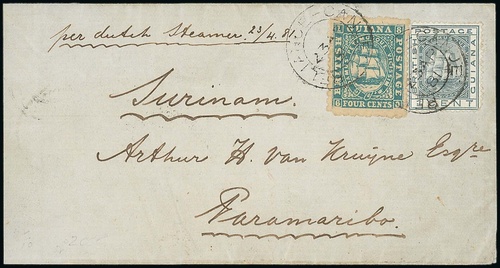 per dutch Steamer 23/4.81
BRITISH GUIANA POSTAGE
FOUR CENTS
POSTAGE
BRITISH GUIANA
CENT
Surinam.
Arthur H. van Kruijne Esqre
Paramaribo.